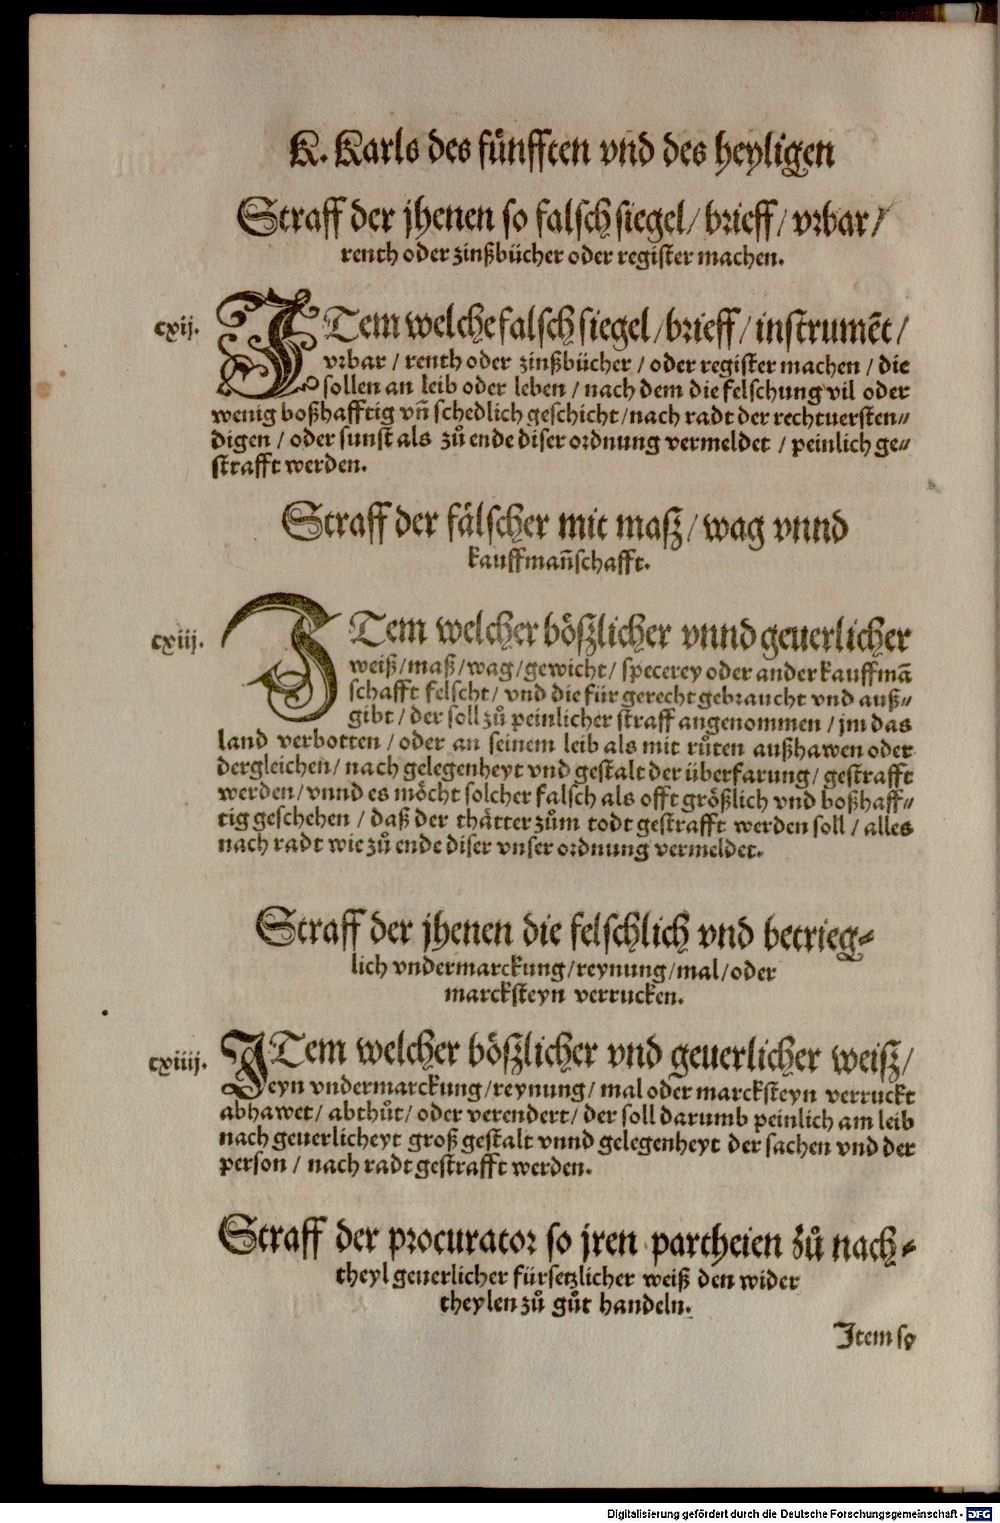 K. Karls des fünfften vnd des heyligen
Straff der jhenen so falsch siegel / brieff / vrbar /
renth oder zinßbücher oder register machen.
cxij. ITem welche falsch siegel / brieff / instrumēt /
vrbar / renth oder zinßbücher / oder register machen / die
sollen an leib oder leben / nach dem die felschung vil oder
wenig boßhafftig vñ schedlich geschicht / nach radt der rechtuersten⸗
digen / oder sunst als zů ende diser ordnung vermeldet / peinlich ge⸗
strafft werden.
Straff der fälscher mit maß / wag vnnd
kauffmañschafft.
cxiij. ITem welcher bößlicher vnnd geuerlicher
weiß / maß / wag / gewicht / specerey oder ander kauffmā
schafft felscht / vnd die für gerecht gebraucht vnd auß⸗
gibt / der soll zů peinlicher straff angenommen / jm das
land verbotten / oder an seinem leib als mit růten außhawen oder
dergleichen / nach gelegenheyt vnd gestalt der überfarung / gestrafft
werden / vnnd es möcht solcher falsch als offt größlich vnd boßhaff⸗
tig geschehen / daß der thätter zům todt gestrafft werden soll / alles
nach radt wie zů ende diser vnser ordnung vermeldet.
Straff der jhenen die felschlich vnd betrieg⸗
lich vndermarckung / reynung / mal / oder
marcksteyn verrucken.
cxiiij. ITem welcher bößlicher vnd geuerlicher weiß /
eyn vndermarckung / reynung / mal oder marcksteyn verruckt
abhawet / abthůt / oder verendert / der soll darumb peinlich am leib
nach geuerlicheyt groß gestalt vnnd gelegenheyt der sachen vnd der
person / nach radt gestrafft werden.
Straff der procurator so jren partheien zů nach⸗
theyl geuerlicher fürsetzlicher weiß den wider
theylen zů gůt handeln.
Item so
Digitalisierung gefördert durch die Deutsche Forschungsgemeinschaft - DFG